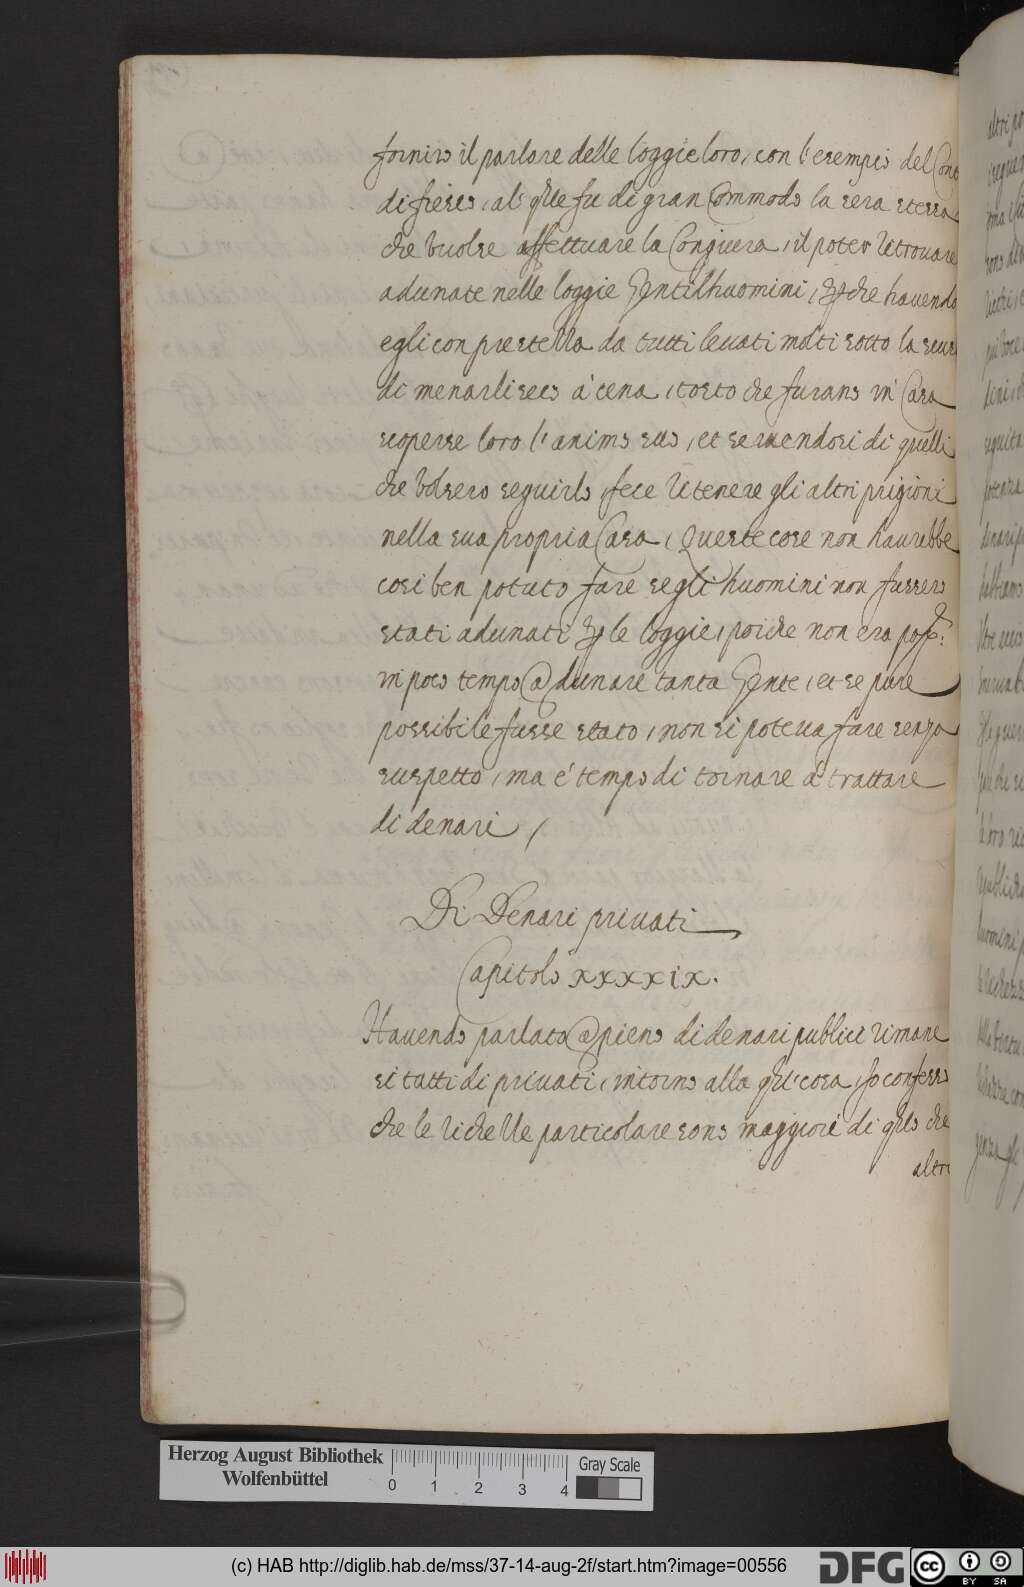 fornirò il parlare delle loggie loro, con l'esempio del Cont
di fiesco, al qlle fu di gran Commodo la sera stessa
che volse effettuare la Congiura, il poter ritrovare
adunate nelle loggie Gentilhuomini, & che havendo
egli con prestezza da tutti levati molti sotto la scusa
di menarli seco à cena, tosto che furano in Casa
scoperse loro l'animo suo, et servendosi di quelli
che volsero seguirlo, fece ritenere gli altri prigioni
nella sua propria Casa, Queste cose non haurebbe
cosi ben potuto fare se gli huomini non fussero
stati adunati p le loggie, poiche non era poss:
in poco tempo adunare tanta Gente, et se pure
possibile fusse stato, non si poteva fare senza
suspetto, ma è tempo di tornare à trattare
di denari,
Di Denari privati
Capitolo XXXXIX.
Havendo parlato à pieno di denari publici rimane
si tratti di privati, intorno alla ql cosa, Io confesso
che le richezze particolare sono maggiori di qllo che
altri
Herzog August Bibliothek
Wolfenbüttel
0 1 2 3 4
Gray Scale
(c) HAB http://diglib.hab.de/mss/37-14-aug-2f/start.htm?image=00556
DFG
cc BY SA